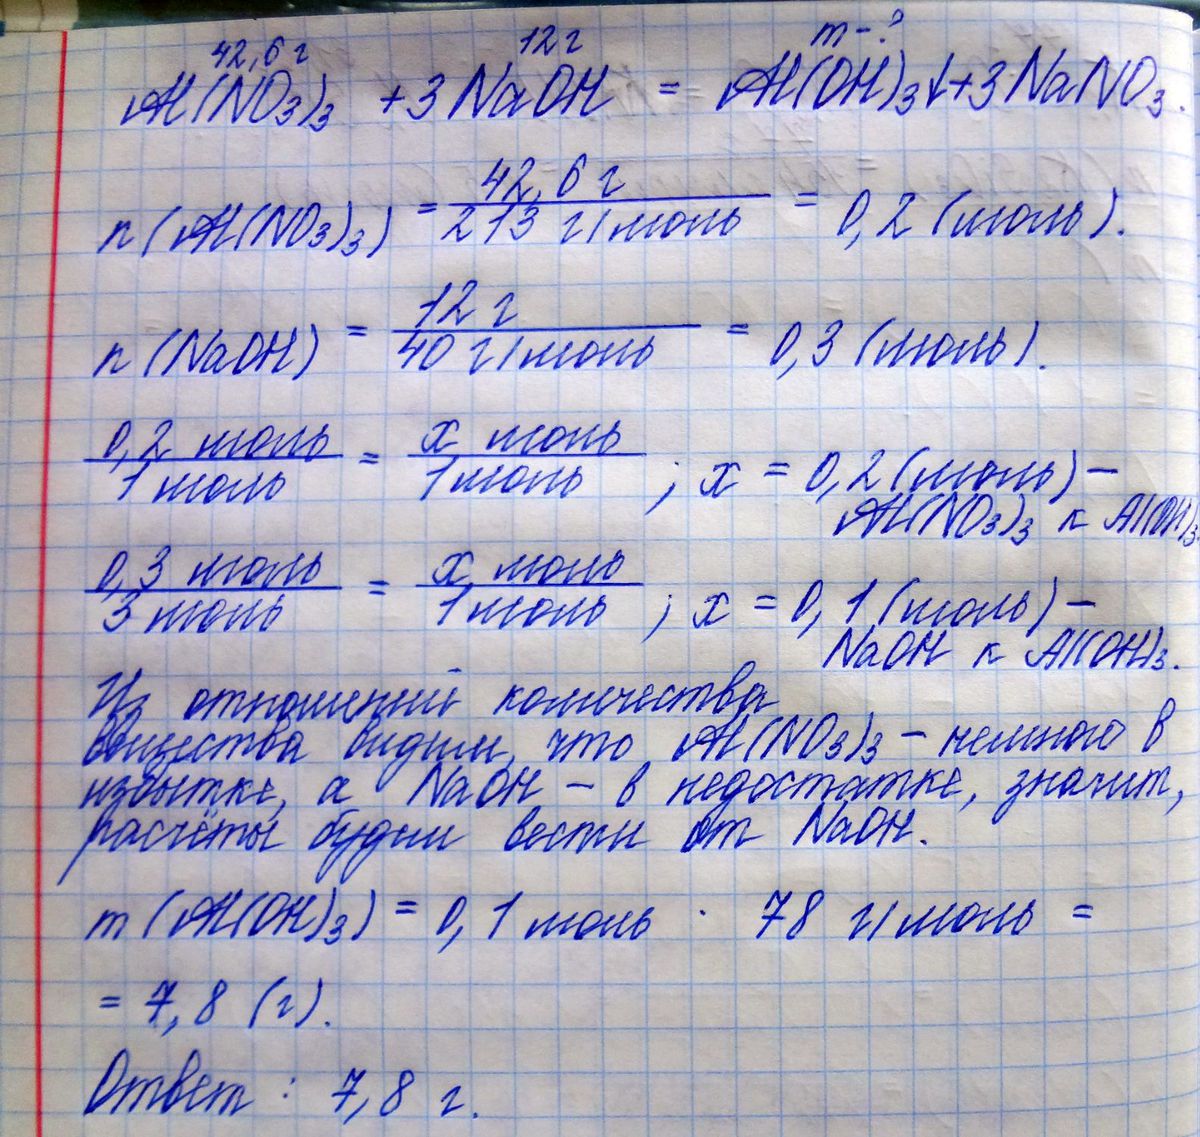 42,6 г 12 г m - ?
Al(NO3)3 + 3 NaOH = Al(OH)3↓ + 3 NaNO3.
n(Al(NO3)3) = 42,6 г / 213 г/моль = 0,2 (моль).
n(NaOH) = 12 г / 40 г/моль = 0,3 (моль).
0,2 моль / 1 моль = x моль / 1 моль ; x = 0,2 (моль) –
Al(NO3)3 к Al(OH)3
0,3 моль / 3 моль = x моль / 1 моль ; x = 0,1 (моль) –
NaOH к Al(OH)3.
Из отношений количества
вещества видим, что Al(NO3)3 – немного в
избытке, а NaOH – в недостатке, значит,
расчёты будем вести от NaOH.
m(Al(OH)3) = 0,1 моль · 78 г/моль =
= 7,8 (г).
Ответ : 7,8 г.